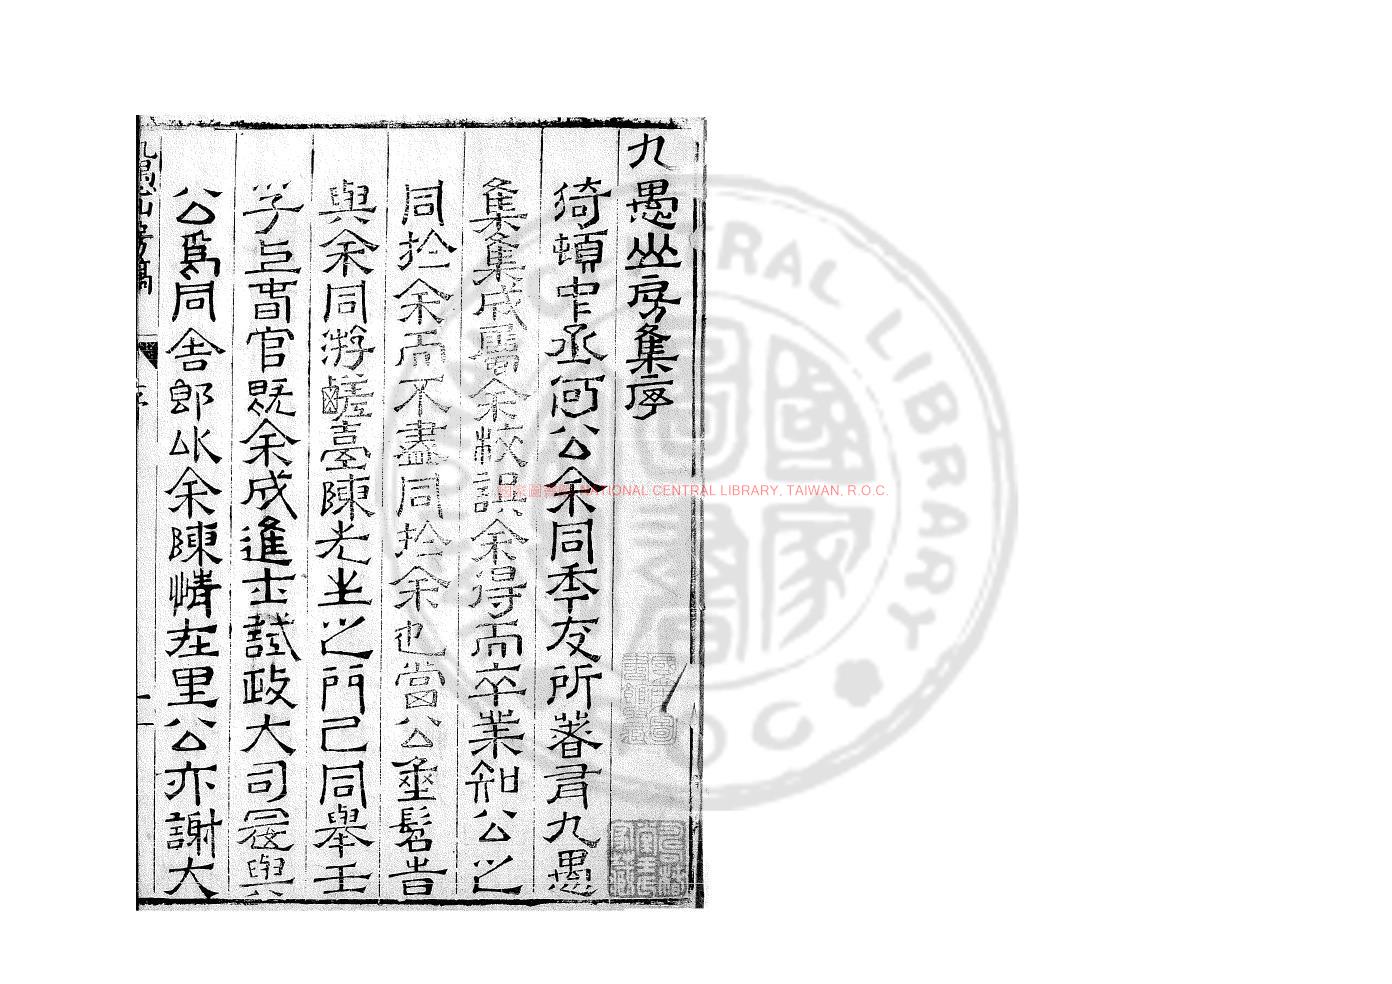 九愚山房集序
猗頓中丞何公余同秊友所著有九愚
集集成屬余校誤余得而卒業知公之
同於余而不盡同於余也當公垂髫旹
與余同游鹺臺陳先生之門已同舉壬
子上春官既余成進士試政大司農與
公爲同舍郎以余陳情在里公亦謝大
九愚山房稿 序 一
國家圖書館 NATIONAL CENTRAL LIBRARY, TAIWAN, R.O.C.